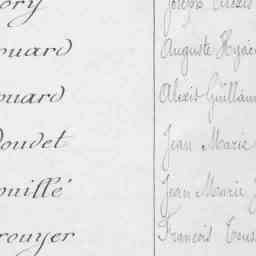 ory Joseph Alexis
ouard Auguste Hyac
ouard Alexis Guillau
oudet Jean Marie
ouillé Jean Marie J
rouyer Francois Tous